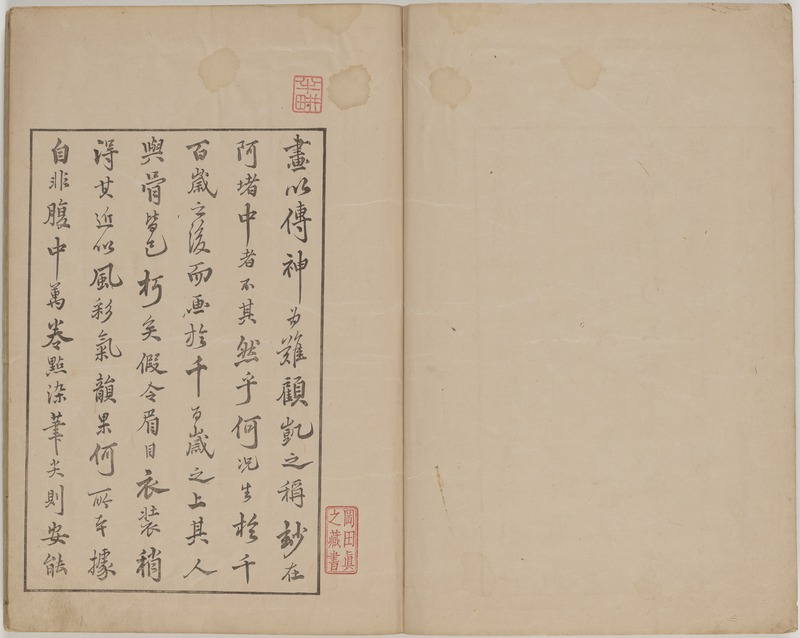 畫以傳神為難顧凱之稱玅在
阿堵中者不其然乎何況生於千
百歲之後而画於千百歲之上其人
與骨皆已朽矣假令眉目衣裝稍
得其近似風彩氣韻果何所本據
自非腹中萬卷點染筆尖則安能
岡田眞
之藏書